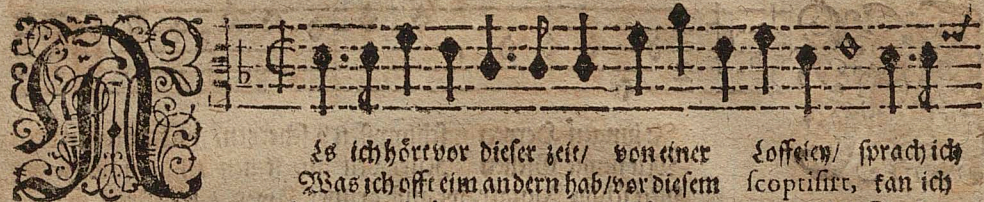 Als ich hört vor dieser zeit/ von einer Löffeley/ sprach ich
Was ich offt eim andern hab/vor diesem scoptisirt, kan ich